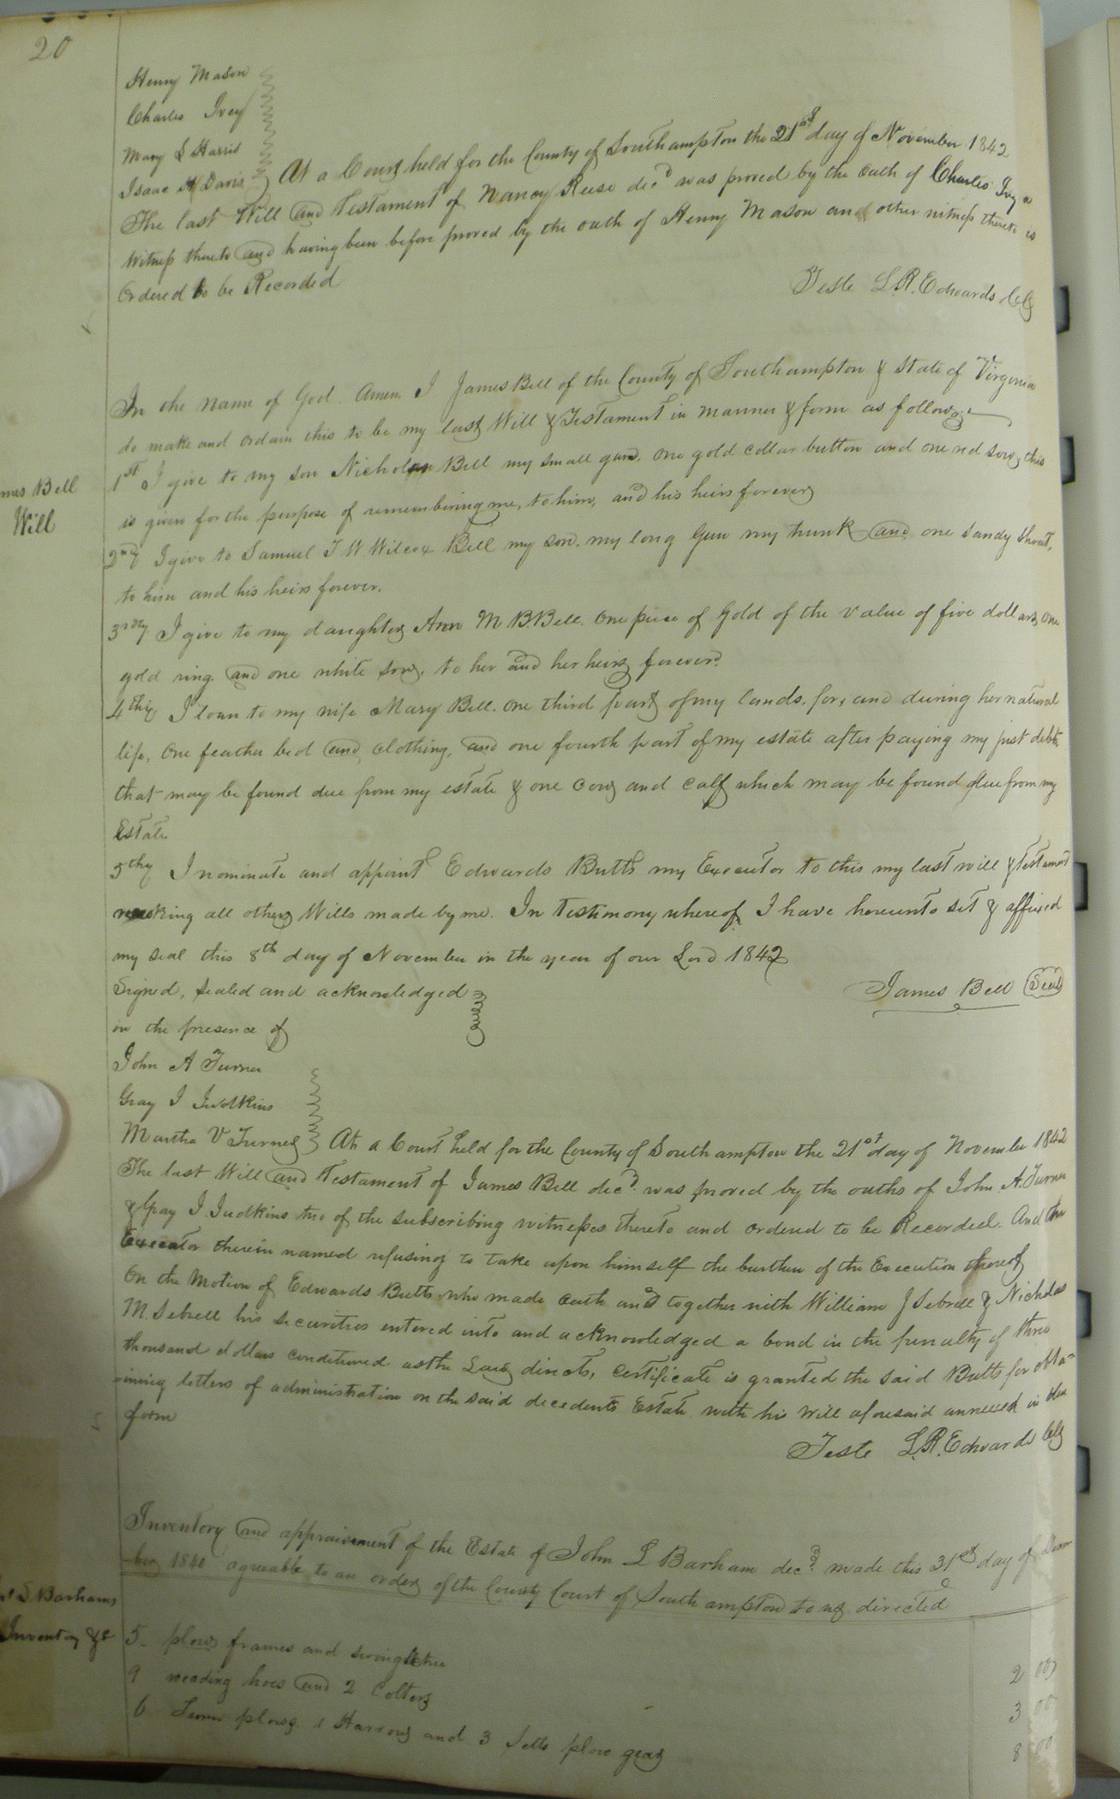 20
Henry Mason
Charles Ivey
Mary L Harris
Isaac H Davis
At a Court held for the County of Southampton the 21st day of November 1842
The last Will and Testament of Nancy Reese decd was proved by the oath of Charles Ivey a
witness thereto and having been before proved by the oath of Henry Mason another witness thereto is
Ordered to be Recorded
Teste L.R. Edwards Clk
In the name of God Amen I James Bell of the County of Southampton & State of Virginia
do make and ordain this to be my last Will & Testament in manner & form as follows
mes Bell
Will
1st I give to my son Nicholas Bell my small gun, one gold collar button and one red sow, this
is given for the purpose of remembering me, to him, and his heirs forever
2ndly I give to Samuel T W Wilcox Bell my son. my long Gun my trunk and one sandy shoat,
to him and his heirs forever.
3rdly I give to my daughter Ann M B Bell. One piece of Gold of the value of five dollars, one
gold ring and one white sow, to her and her heirs forever.
4thly I loan to my wife Mary Bell. one third part of my lands, for, and during her natural
life, One feather bed and clothing, and one fourth part of my estate after paying my just debts,
that may be found due from my estate & one cow and calf which may be found due from my
Estate
5thly I nominate and appoint Edwards Butts my Executor to this my last will & testament
revoking all others Wills made by me. In Testimony whereof I have hereunto set & affixed
my seal this 8th day of November in the year of our Lord 1842
Signed, sealed and acknowledged
James Bell Seal
in the presence of
John A Turner
Gray I Judkins
Martha V Turner
At a Court held for the County of Southampton the 21st day of November 1842
The last Will and Testament of James Bell decd was proved by the oaths of John A. Turner
& Gray I Judkins two of the subscribing witnesses thereto and ordered to be Recorded. And the
Executor therein named refusing to take upon himself the burthen of the Execution thereof
On the Motion of Edwards Butts who made oath and together with William J Sebrell & Nicholas
M Sebrell his securities entered into and acknowledged a bond in the penalty of three
thousand dollars conditioned as the Law directs, Certificate is granted the said Butts for obta-
-ining letters of administration on the said decedents Estate with his Will aforesaid annexed in due
form
Teste L.R. Edwards Clk
Inventory and appraisement of the Estate of John L Barham decd made this 31st day of Decem
ber 1840 agreeable to an order of the County Court of Southampton to us directed
S Barhams
Inventory &c
5 plow frames and swingletree 2 00
9 weading hoes and 2 Colters 3 00
6 Turn plows 1 Harrow and 3 Setts plow gear 8 00